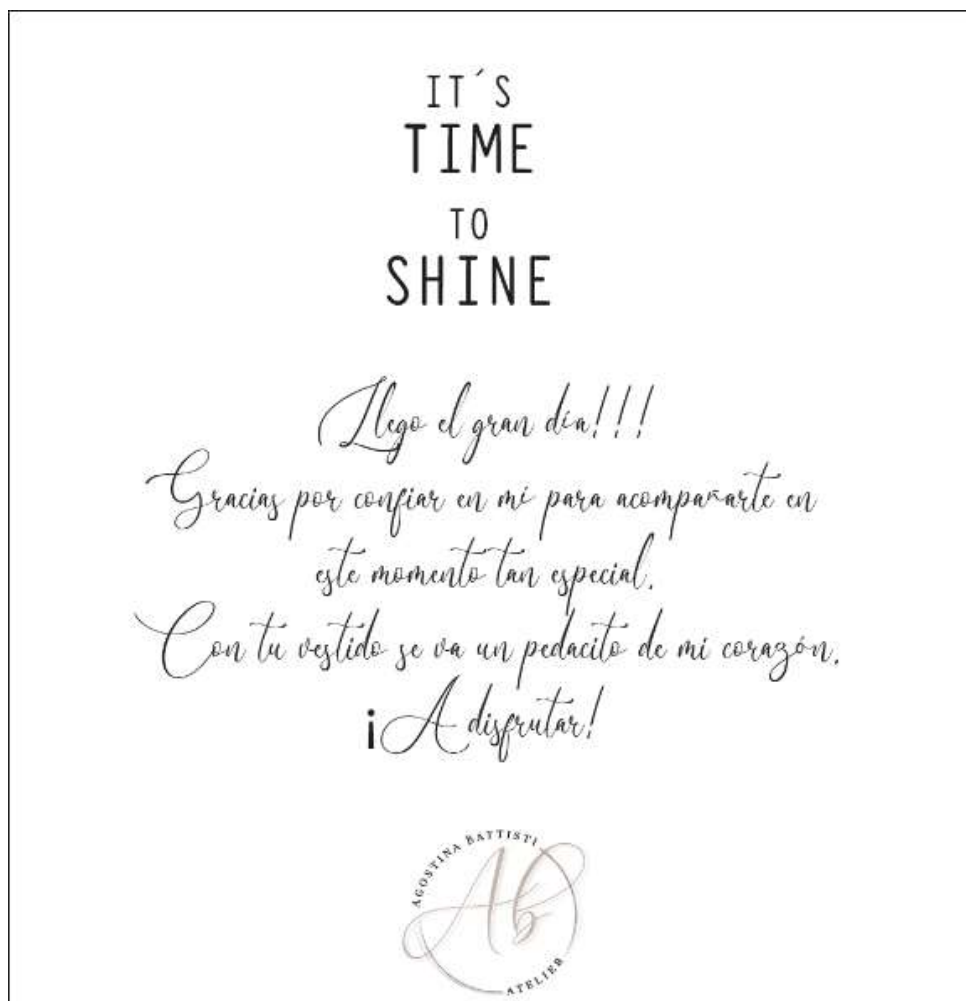 IT´S
TIME
TO
SHINE
Llego el gran día!!!
Gracias por confiar en mí para acompañarte en
este momento tan especial.
Con tu vestido se va un pedacito de mi corazón.
¡A disfrutar!
AGOSTINA BATTISTI
Ab
ATELIER